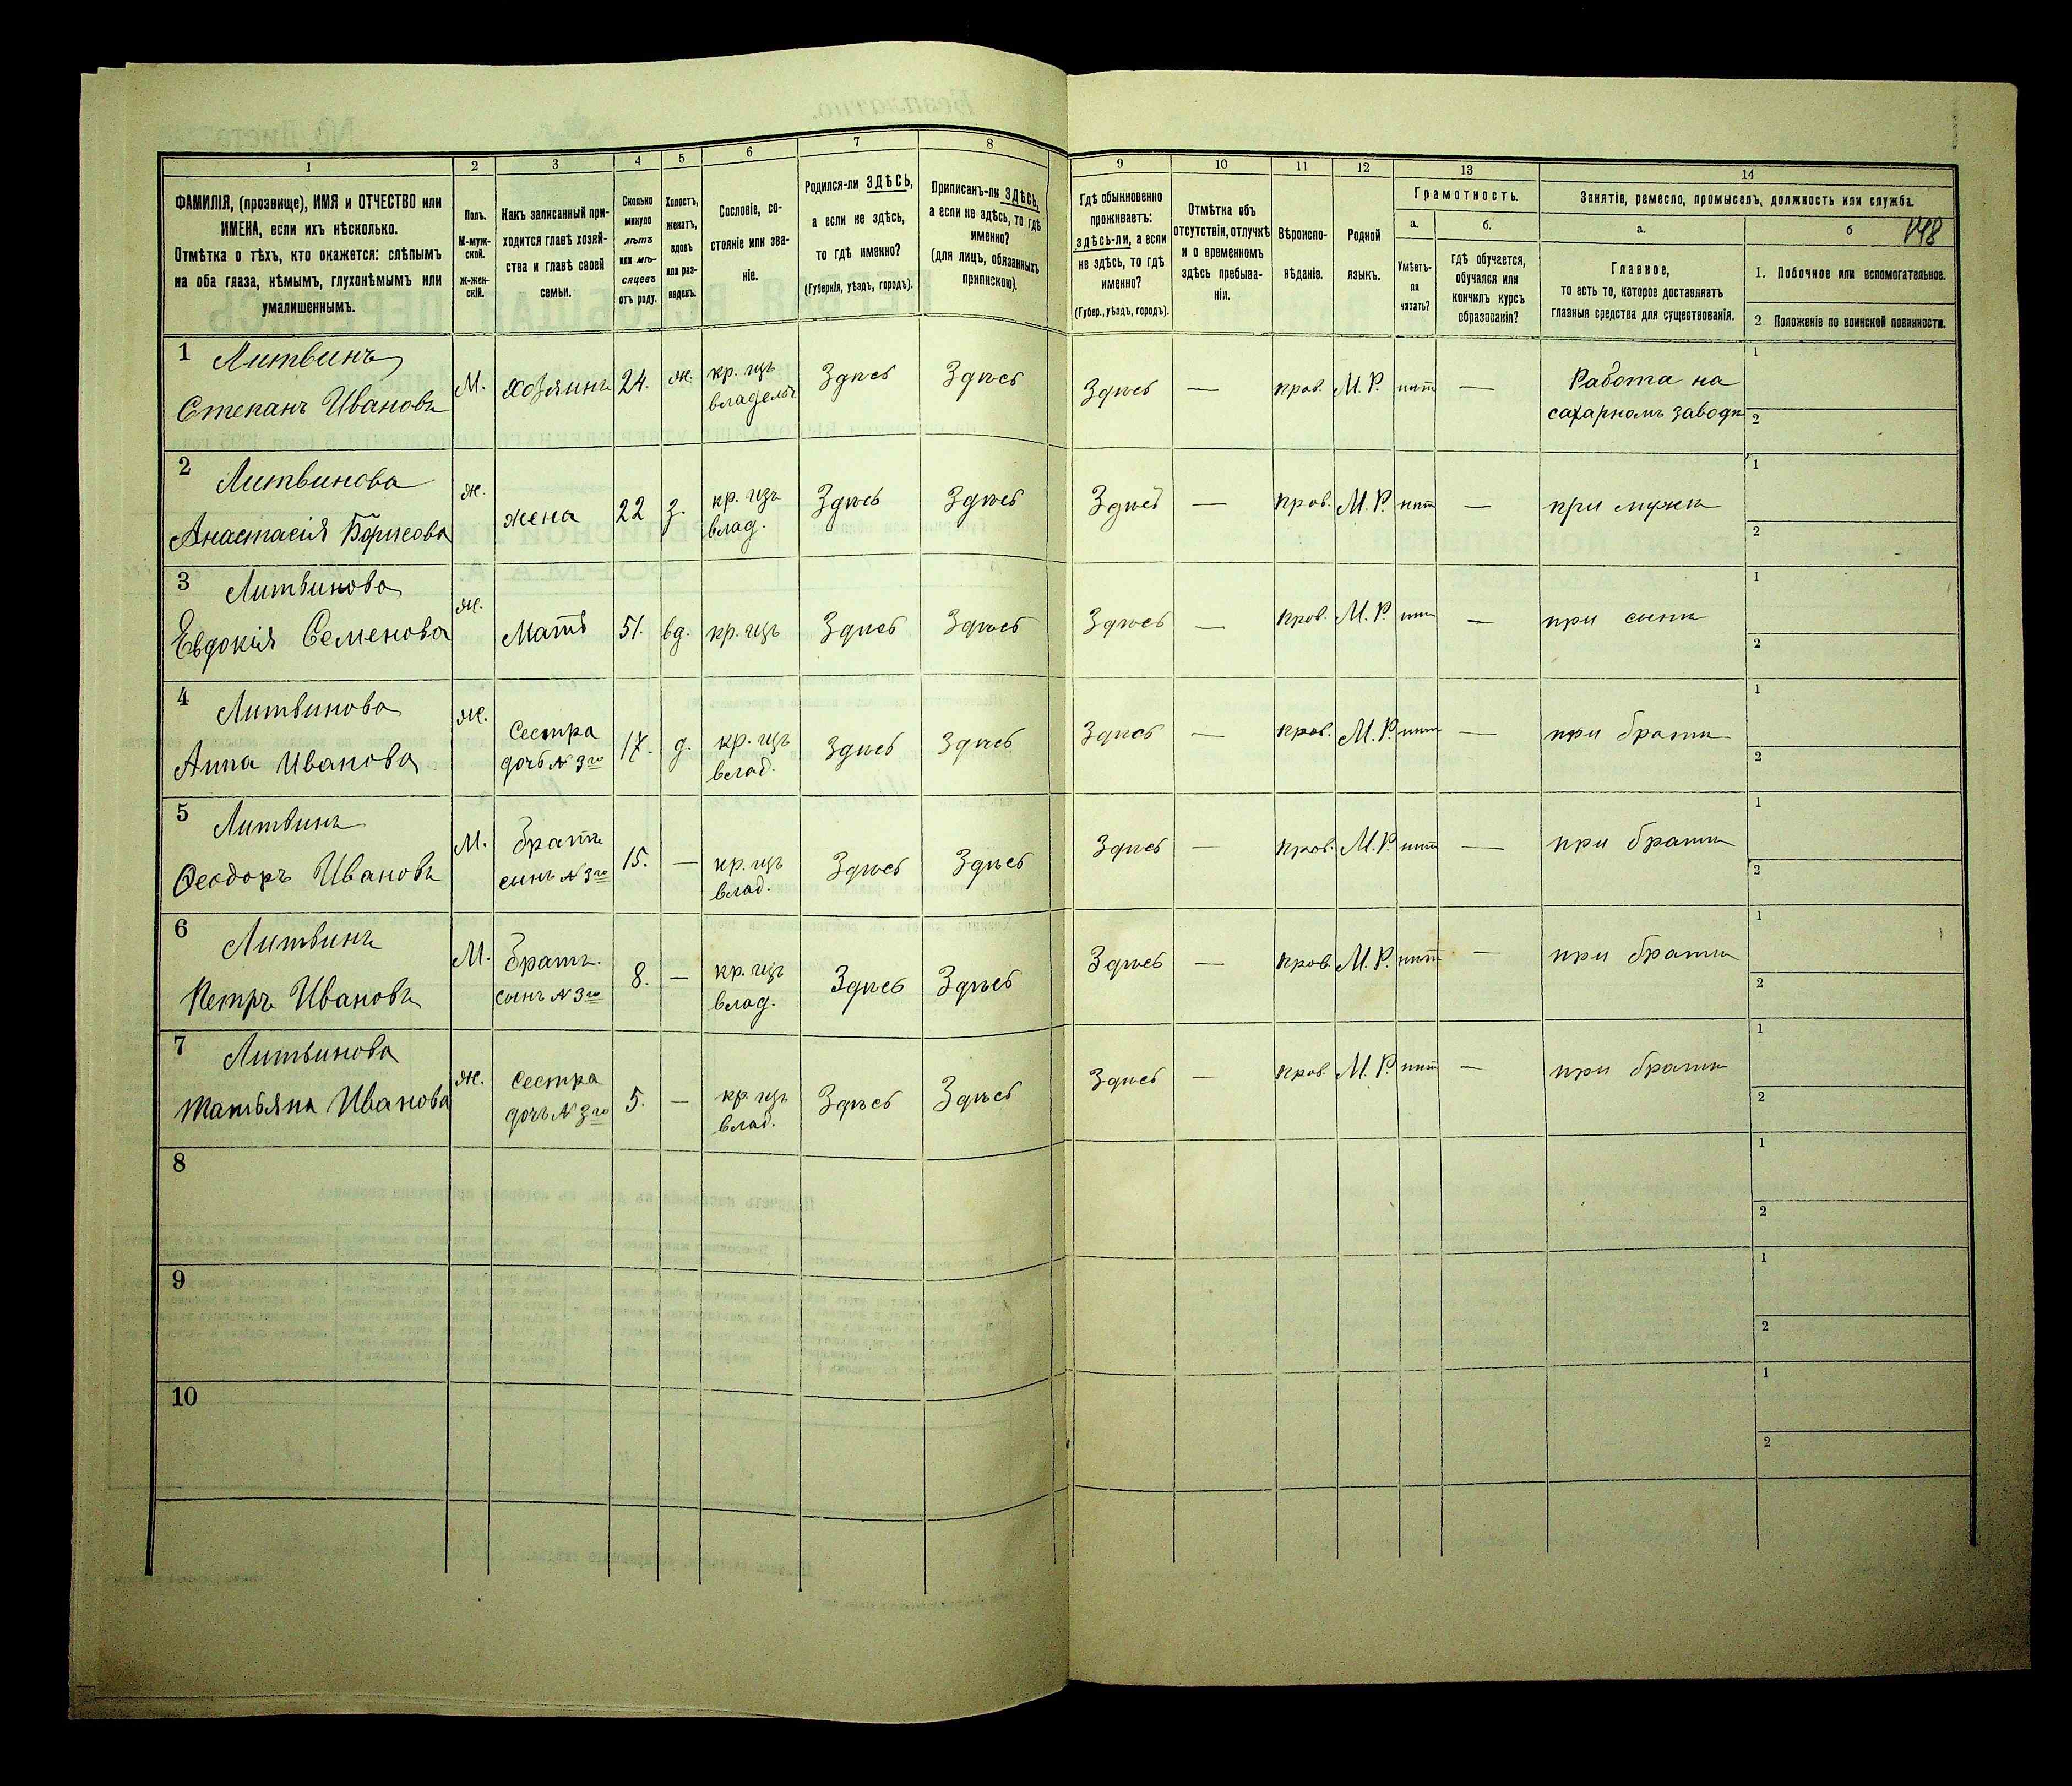 1
2
3
4
5
6
7
8
9
10
11
12
13
14
ФАМИЛІЯ, (прозвище), ИМЯ и ОТЧЕСТВО или
ИМЕНА, если ихъ нѣсколько.
Отмѣтка о тѣхъ, кто окажется: слѣпымъ
на оба глаза, нѣмымъ, глухонѣмымъ или
умалишеннымъ.
Полъ.
М-муж-
ской.
Ж-жен-
скій.
Какъ записанный при-
ходится главѣ хозяй-
ства и главѣ своей
семьи.
Сколько
минуло
лѣтъ
или мѣ-
сяцевъ
отъ роду.
Холостъ,
женатъ,
вдовъ
или раз-
веденъ.
Сословіе, со-
стояніе или зва-
ніе.
Родился-ли ЗДѢСЬ,
а если не здѣсь,
то гдѣ именно?
(Губернія, уѣздъ, городъ).
Приписанъ-ли ЗДѢСЬ,
а если не здѣсь, то гдѣ
именно?
(для лицъ, обязанныхъ
припискою).
Гдѣ обыкновенно
проживаетъ:
здѣсь-ли, а если
не здѣсь, то гдѣ
именно?
(Губер., уѣздъ, городъ).
Отмѣтка объ
отсутствіи, отлучкѣ
и о временномъ
здѣсь пребыва-
ніи.
Вѣроиспо-
вѣданіе.
Родной
языкъ.
Грамотность.
а.
Умѣетъ-
ли
читать?
б.
гдѣ обучается,
обучался или
кончилъ курсъ
образованія?
Занятіе, ремесло, промыселъ, должность или служба.
а.
Главное,
то есть то, которое доставляетъ
главныя средства для существованія.
б
148
1. Побочное или вспомогательное.
2. Положеніе по воинской повинности.
1 Литвинъ
Степанъ Ивановъ
М.
Хозяинъ
24.
ж.
кр. изъ
владельч
Здѣсь
Здѣсь
Здѣсь
—
прав.
М. Р.
нѣт
—
Работа на
сахарномъ заводѣ
1
2
2 Литвинова
Анастасія Борисова
ж.
жена
22
з.
кр. изъ
влад.
Здѣсь
Здѣсь
Здѣсь
—
прав.
М. Р.
нѣт
—
при мужѣ
1
2
3 Литвинова
Евдокія Семенова
ж.
Мать
51.
вд.
кр. изъ
Здѣсь
Здѣсь
Здѣсь
—
прав.
М. Р.
нѣт
—
при сынѣ
1
2
4 Литвинова
Анна Иванова
ж.
Сестра
дочь № 3го
17.
д.
кр. изъ
влад.
Здѣсь
Здѣсь
Здѣсь
—
прав.
М. Р.
нѣт
—
при братѣ
1
2
5 Литвинъ
Ѳеодоръ Ивановъ
М.
братъ
сынъ № 3го
15.
—
кр. изъ
влад.
Здѣсь
Здѣсь
Здѣсь
—
прав.
М. Р.
нѣт
—
при братѣ
1
2
6 Литвинъ
Петръ Ивановъ
М.
братъ.
сынъ № 3го
8.
—
кр. изъ
влад.
Здѣсь
Здѣсь
Здѣсь
—
прав.
М. Р.
нѣт
—
при братѣ
1
2
7 Литвинова
Татьяна Иванова
ж.
сестра
дочь № 3го
5.
—
кр. изъ
влад.
Здѣсь
Здѣсь
Здѣсь
—
прав.
М. Р.
нѣт
—
при братѣ
1
2
8
1
2
9
1
2
10
1
2